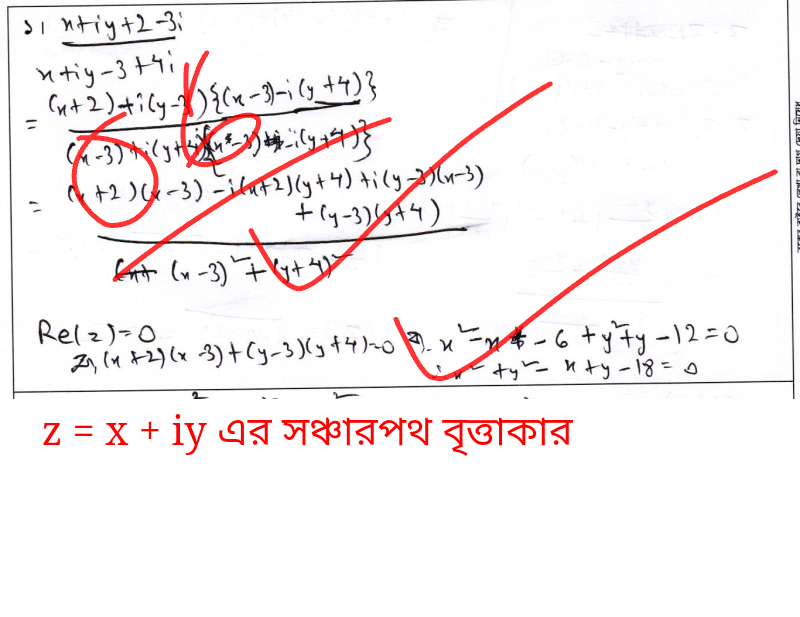 ১। x+iy+2-3i
x+iy-3+4i
= (x+2)+i(y-3){(x-3)-i(y+4)}
(x-3)+i(y+4){(x-3)-i(y+4)}
= (x+2)(x-3)-i(x+2)(y+4)+i(y-3)(x-3)
+(y-3)(y+4)
(x-3)²+(y+4)²
Re(z)=0
(x+2)(x-3)+(y-3)(y+4)=0
x²-x-6+y²+y-12=0
x²+y²-x+y-18=0
z = x + iy এর সঞ্চারপথ বৃত্তাকার